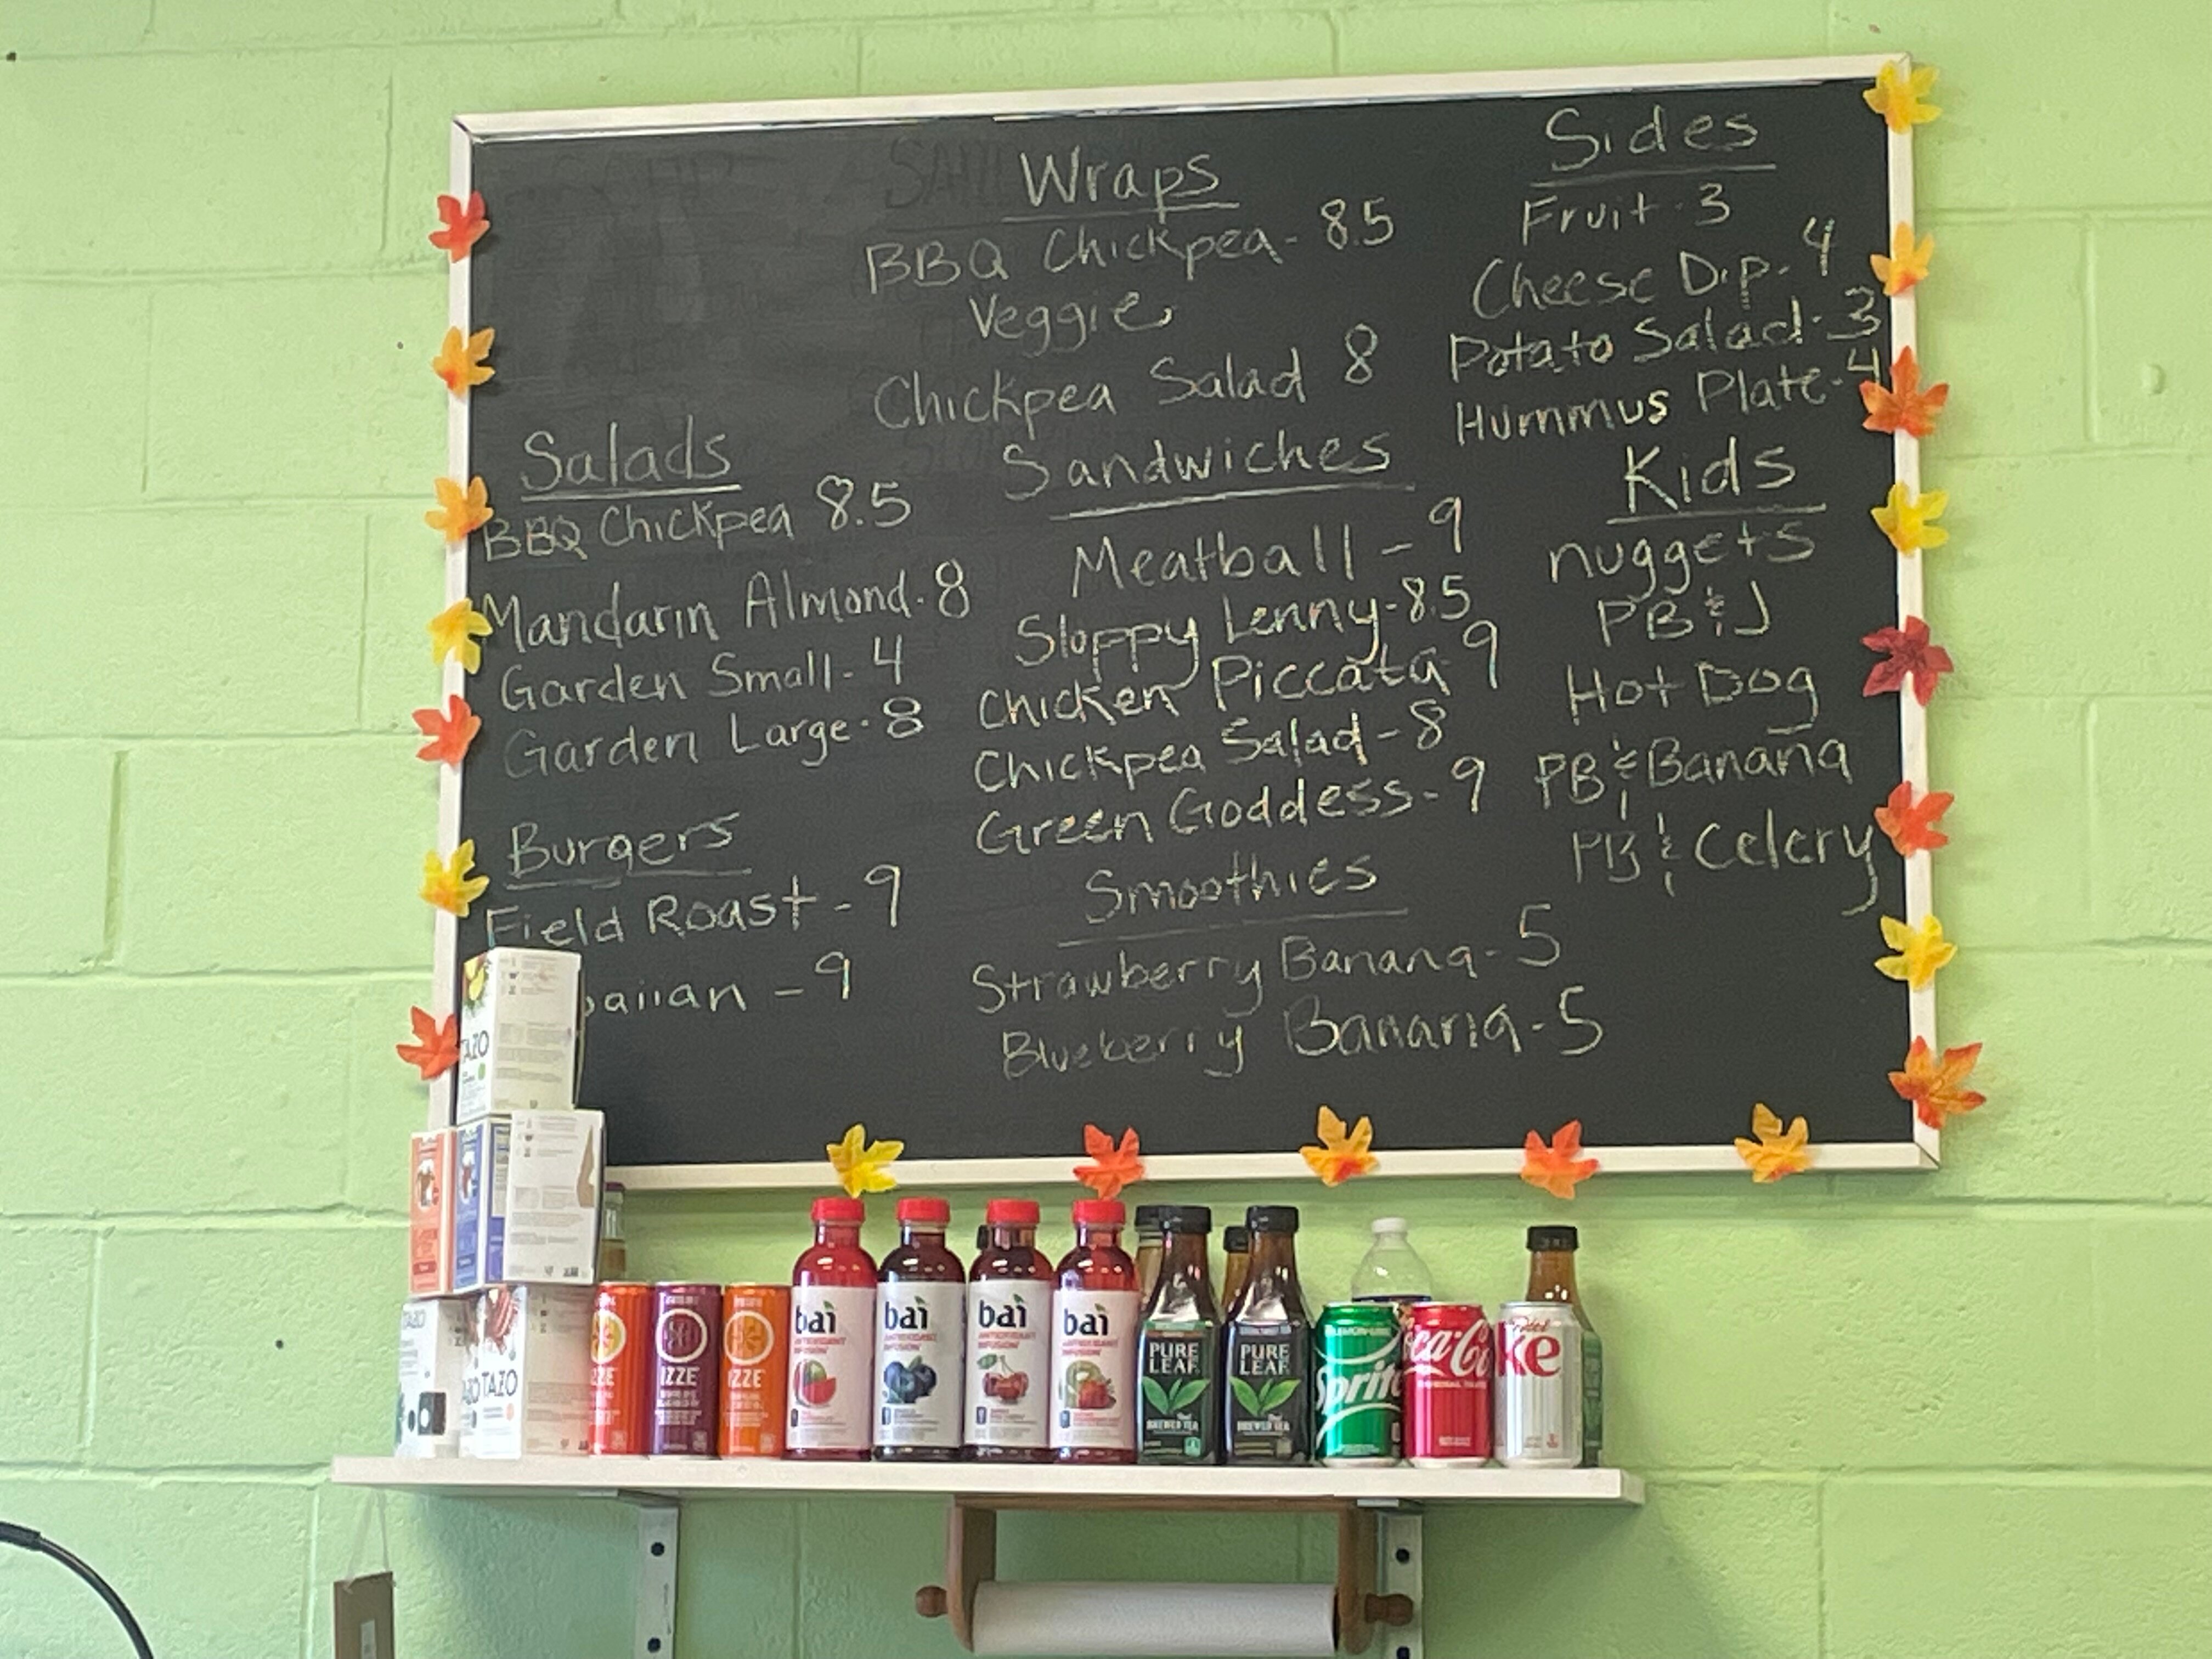 Wraps
BBQ Chickpea - 8.5
Veggie
Chickpea Salad 8
Sides
Fruit - 3
Cheese Dip - 4
Potato Salad - 3
Hummus Plate - 4
Salads
BBQ Chickpea 8.5
Mandarin Almond - 8
Garden Small - 4
Garden Large - 8
Sandwiches
Meatball - 9
Sloppy Lenny - 8.5
Chicken Piccata 9
Chickpea Salad - 8
Green Goddess - 9
Kids
nuggets
PB & J
Hot Dog
PB & Banana
PB & Celery
Burgers
Field Roast - 9
aiian - 9
Smoothies
Strawberry Banana - 5
Blueberry Banana - 5
TAZO
TAZO
TAZO
IZZE
IZZE
IZZE
bai
ANTIOXIDANT
INFUSION
bai
ANTIOXIDANT
INFUSION
bai
ANTIOXIDANT
INFUSION
bai
ANTIOXIDANT
INFUSION
PURE
LEAF
BREWED TEA
PURE
LEAF
BREWED TEA
Sprite
Coca-Co
ke